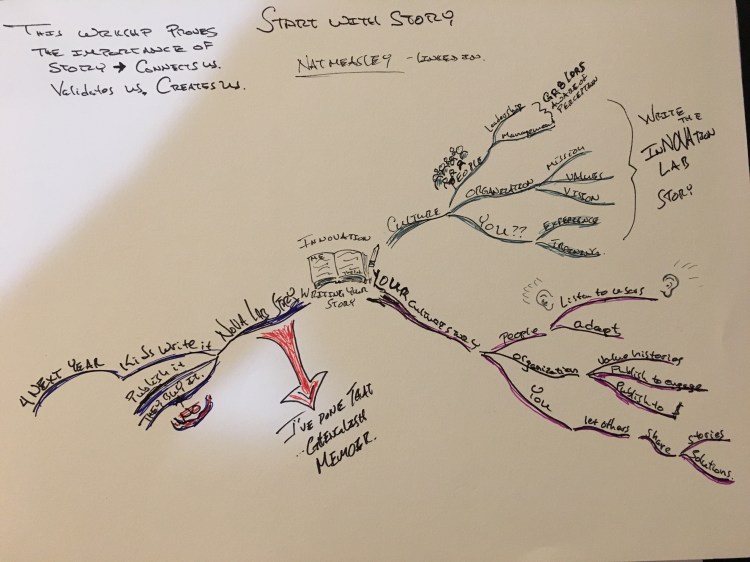 THIS WRKSHP PROVES
THE IMPORTANCE OF
STORY → CONNECTS US.
Validates US. CREATES US.
START WITH STORY
NAT MEASLEY - LINKED IN.
INNOVATION
ME
WRITING YOUR
STORY
CULTURE
PEOPLE
Leadership
Management
AGE OF
PERCEPTION
ORGANIZATION
MISSION
VALUES
VISION
YOU??
EXPERIENCE
WRITE THE
INNOVATION
LAB
STORY
YOUR Culture Story
People
Listen to users
adapt
Organization
Value histories
Publish to engage
Publish to $
You
let others
Share
Stories
Solutions.
NOVA Lab Story
Kids Write it
Publish it
THEY BUY IT.
4 NEXT YEAR
I'VE DONE THAT
MEMOIR.